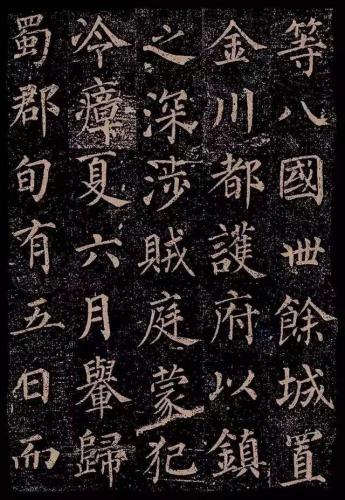 等八國卅餘城置
金川都護府以鎮
之深涉賊庭蒙犯
冷瘴夏六月轝歸
蜀郡旬有五日而